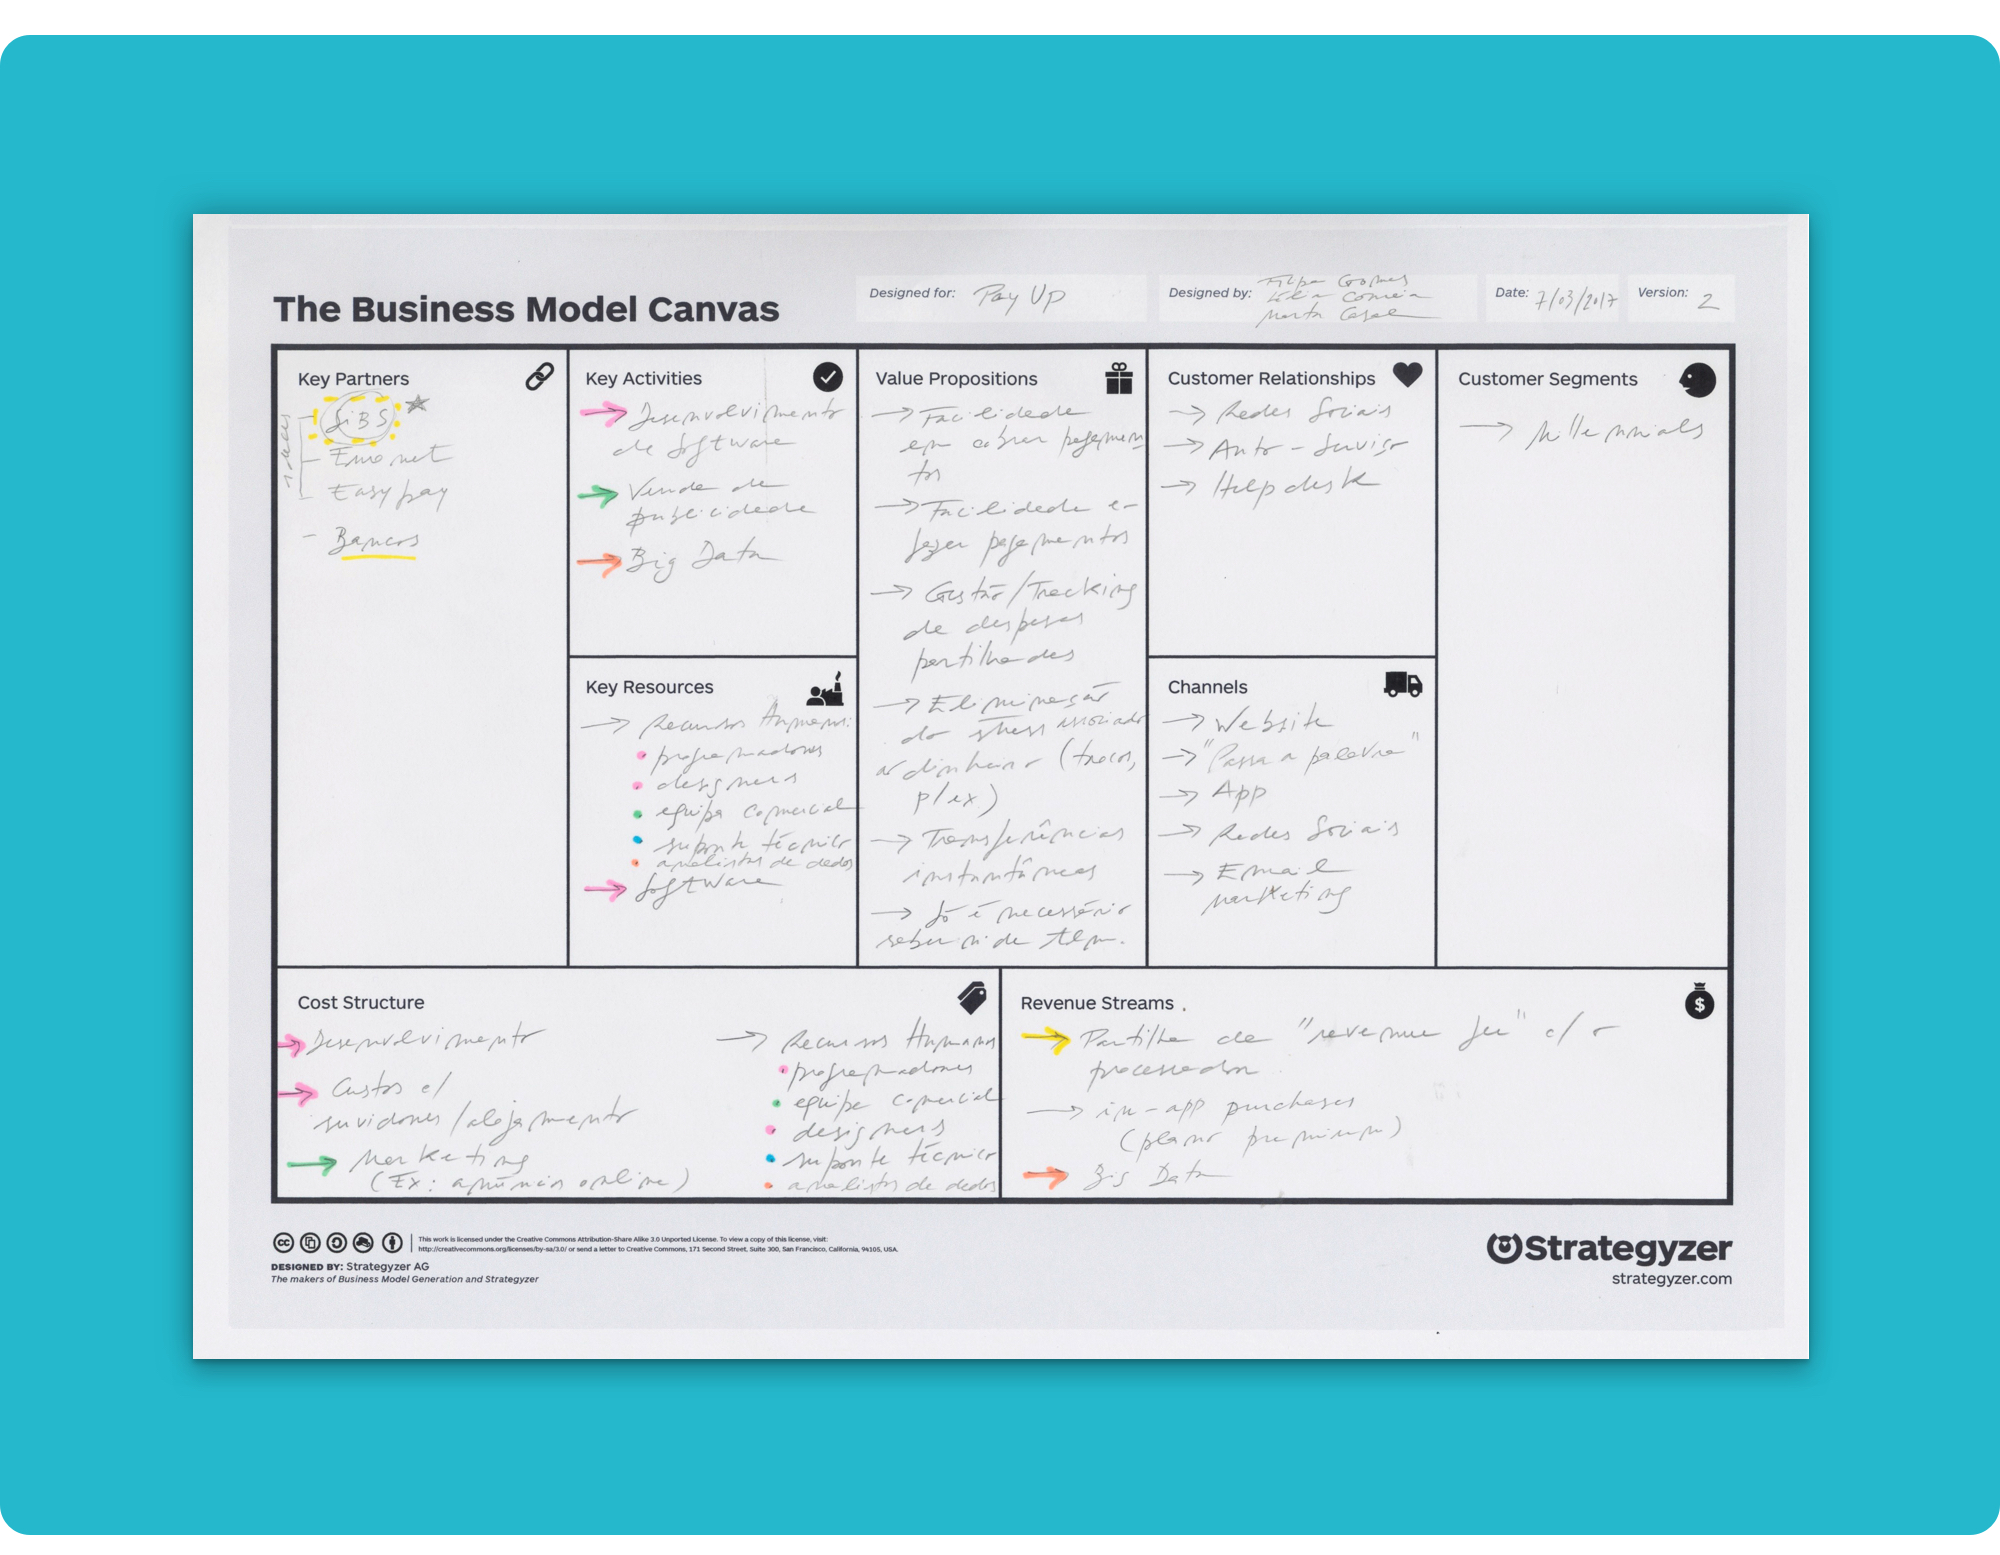 The Business Model Canvas
Designed for: Pay Up
Designed by: Filipa Gomes
Lídia Correia
Marta Casal
Date: 7/03/2017
Version: 2
Key Partners
SIBS
Euronet
Easypay
- Bancos
Key Activities
→ Desenvolvimento
de Software
→ Venda de
publicidade
→ Big Data
Key Resources
→ Recursos Humanos:
• programadores
• designers
• equipa comercial
• suporte técnico
• analistas de dados
→ Software
Value Propositions
→ Facilidade
em cobrar pagamen
tos
→ Facilidade e-
fazer pagamentos
→ Gestão/Tracking
de despesas
partilhadas
→ Eliminação
do stress associado
ao dinheiro (trocos,
p/ex.)
→ Transferências
instantâneas
→ Só é necessário
saber n. de tlm.
Customer Relationships
→ Redes Sociais
→ Auto-Serviço
→ Helpdesk
Channels
→ Website
→ "Passa a palavra"
→ App
→ Redes Sociais
→ Email
marketing
Customer Segments
→ Millennials
Cost Structure
→ Desenvolvimento
→ Custos c/
servidores/alojamento
→ Marketing
(Ex: anúncios online)
→ Recursos Humanos
• programadores
• equipa comercial
• designers
• suporte técnico
• analistas de dados
Revenue Streams
→ Partilha de "revenue fee" c/ o
processador
→ in-app purchases
(plano premium)
→ Big Data
This work is licensed under the Creative Commons Attribution-Share Alike 3.0 Unported License. To view a copy of this license, visit:
http://creativecommons.org/licenses/by-sa/3.0/ or send a letter to Creative Commons, 171 Second Street, Suite 300, San Francisco, California, 94105, USA.
DESIGNED BY: Strategyzer AG
The makers of Business Model Generation and Strategyzer
Strategyzer
strategyzer.com